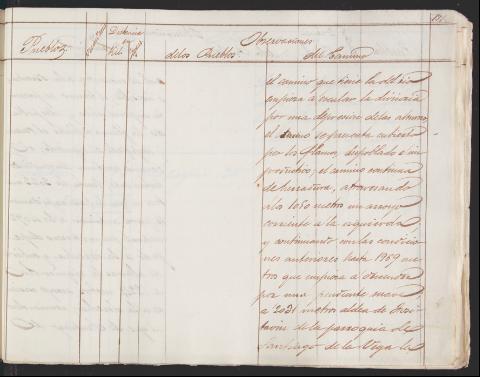 Pueblos
Distancia
Kil.
Observaciones
de los Pueblos
del Camino
el camino que tiene la
empieza a vencer la divisoria
por una depresion de las alturas
el se presenta cubierto
por los flancos, despoblado e im
productivo; el camino continua
de herradura, atravesando
a los 1050 metros un arroyo
corriente a la izquierda
y continuando con las condicio
nes anteriores hasta 1969 me
tros que empieza a descender
por una pendiente suave
a 2031 metros aldea de
de la parroquia de
Santiago de la Vega la